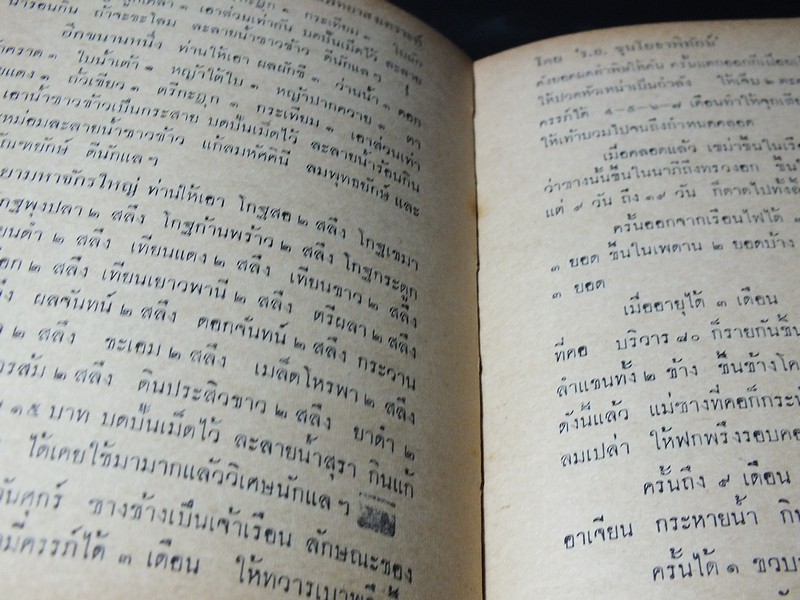 กระเทียม ๑ ใบผัก
น้ำร้อนกิน ถ้าจะชะโลม ละลายน้ำซาวข้าว ดีนักแลๆ
อีกขนานหนึ่ง ท่านให้เอา ผลผักชี ๑ ว่านน้ำ ๑ ดอก
ใบน้ำเต้า ๑ หญ้าใต้ใบ ๑ หญ้าปากควาย ๑ ตา
ถั่วเขียว ๑ ตรีกะฏุก ๑ กระเทียม ๑ เอาส่วนเท่า
เอาน้ำซาวข้าวเป็นกระสาย บดปั้นเม็ดไว้ ละลายน้ำร้อนกิน
ละลายน้ำซาวข้าว แก้ลมหัศคินี ลมพุทธยักษ์ และ
ดีนักแลๆ
ยามหาจักรใหญ่ ท่านให้เอา โกฐสอ ๒ สลึง โกฐเขมา
โกฐพุงปลา ๒ สลึง โกฐก้านพร้าว ๒ สลึง โกฐกระดูก
๒ สลึง เทียนแดง ๒ สลึง เทียนขาว ๒ สลึง
๒ สลึง เทียนเยาวพานี ๒ สลึง ตรีผลา ๒ สลึง
ผลจันทน์ ๒ สลึง ดอกจันทน์ ๒ สลึง กระวาน
๒ สลึง ชะเอม ๒ สลึง เมล็ดโหรพา ๒ สลึง
๒ สลึง ดินประสิวขาว ๒ สลึง ยาดำ ๒
๑๕ บาท บดปั้นเม็ดไว้ ละลายน้ำสุรา กินแก้
ได้เคยใช้มามากแล้ววิเศษนักแลๆ
ซางช้างเป็นเจ้าเรือน ลักษณะของ
มีครรภ์ได้ ๓ เดือน ให้ทวารเบา
โดย "ร.อ. ขุนโยธาพิทักษ์"
ให้ปวดหัวเหน่าเป็นกำลัง ให้เจ็บ ๒
ครรภ์ได้ ๔-๕-๖-๗ เดือนทำให้จุกเสีย
ให้เท้าบวมไปจนถึงกำหนดคลอด
เมื่อคลอดแล้ว เขม่าขึ้นในเรือ
ว่าซางนั้นขึ้นในนาภีถึงทรวงอก ขึ้น
แต่ ๙ วัน ถึง ๑๙ วัน ก็ดาดไปทั้ง
ครั้นออกจากเรือนไฟได้ ๑
๓ ยอด ขึ้นในเพดาน ๒ ยอดบ้าง
๓ ยอด
เมื่ออายุได้ ๓ เดือน
ที่คอ บริวาร ๔๐ ก็รายกันขึ้น
ลำแขนทั้ง ๒ ข้าง ขึ้นข้างโค
ดังนี้แล้ว แม่ซางที่คอก็กระ
ลมเปล่า ให้ฟกพรึงรอบคอ
ครั้นถึง ๙ เดือน
อาเจียน กระหายน้ำ กิน
ครั้นได้ ๑ ขวบ